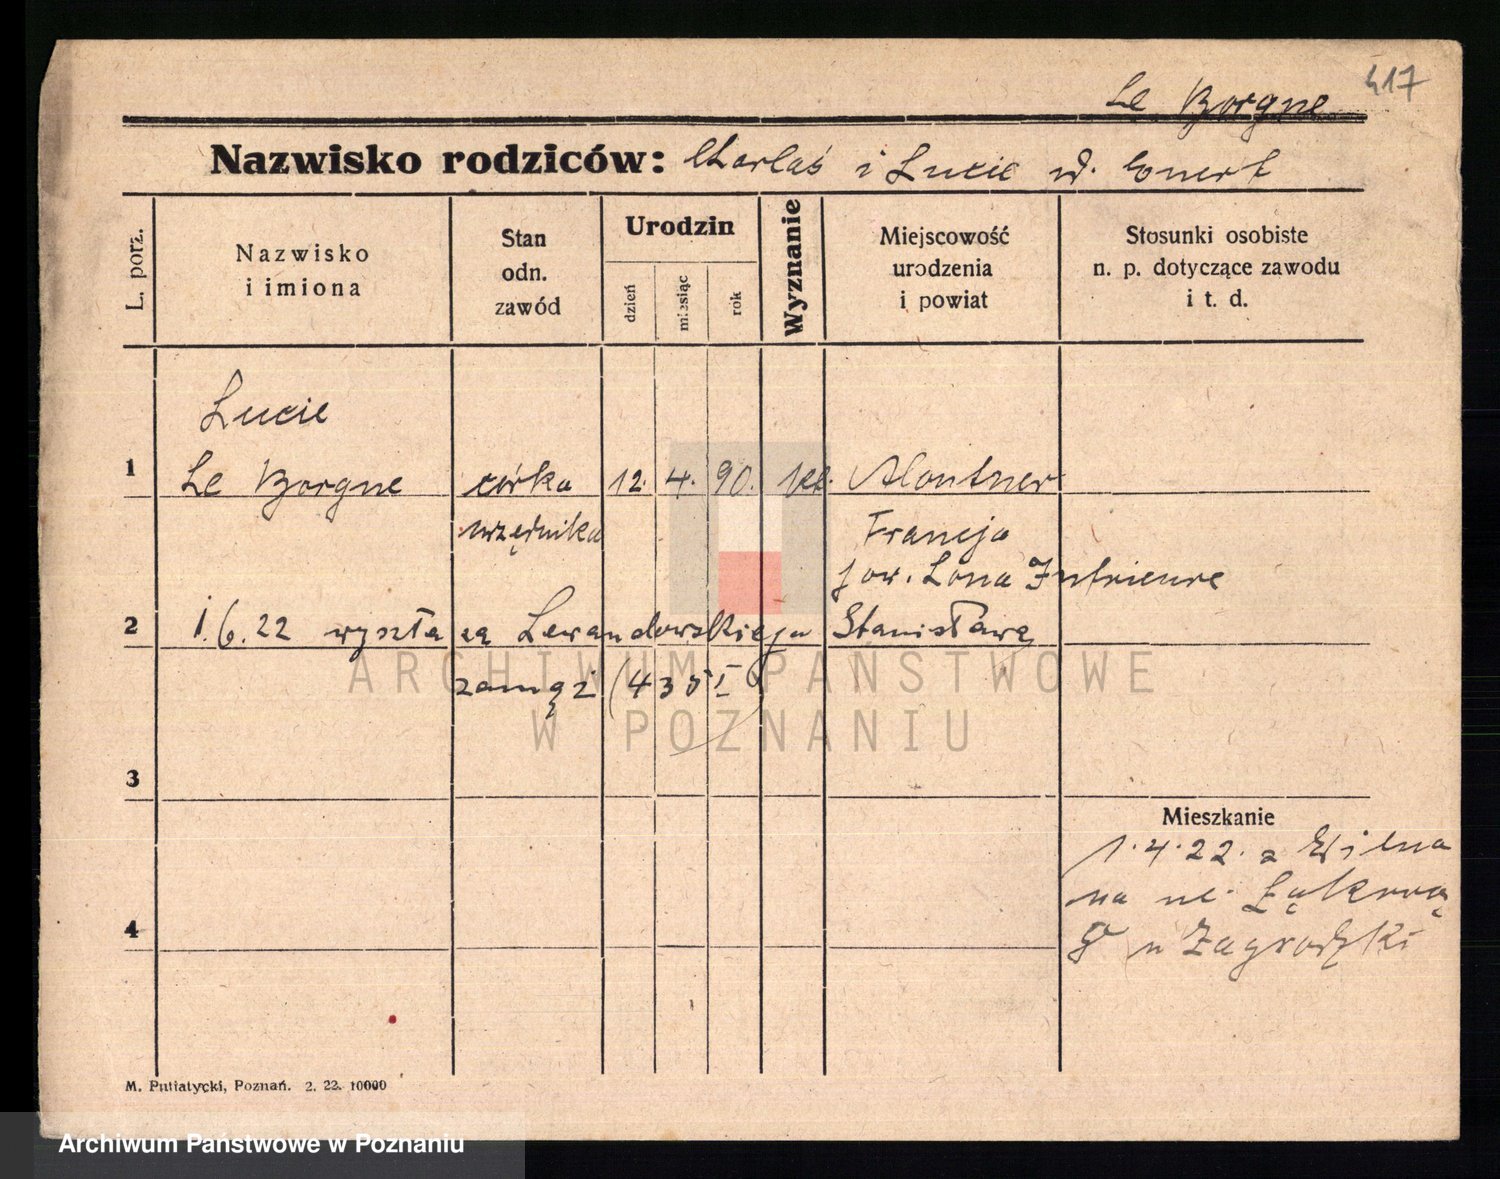 417
Le Borgne
Nazwisko rodziców: Charlas i Lucie d. Evert
L. porz.
Nazwisko
i imiona
Stan
odn.
zawód
Urodzin
dzień
miesiąc
rok
Wyznanie
Miejscowość
urodzenia
i powiat
Stosunki osobiste
n. p. dotyczące zawodu
i t. d.
Lucie
1 Le Borgne córka 12. 4. 90. kat.
urzędnika Francja
pow. Lona Infrieure
2 1.6.22 wyszła za Lewandowskiego Stanisława
zamąż (430 I)
3
Mieszkanie
1.4.22. z Wilna
na ul. Łąkową
4
8 u Zagrodzki
M. Putiatycki, Poznań. 2. 22. 10000
ARCHIWUM PAŃSTWOWE
W POZNANIU
Archiwum Państwowe w Poznaniu